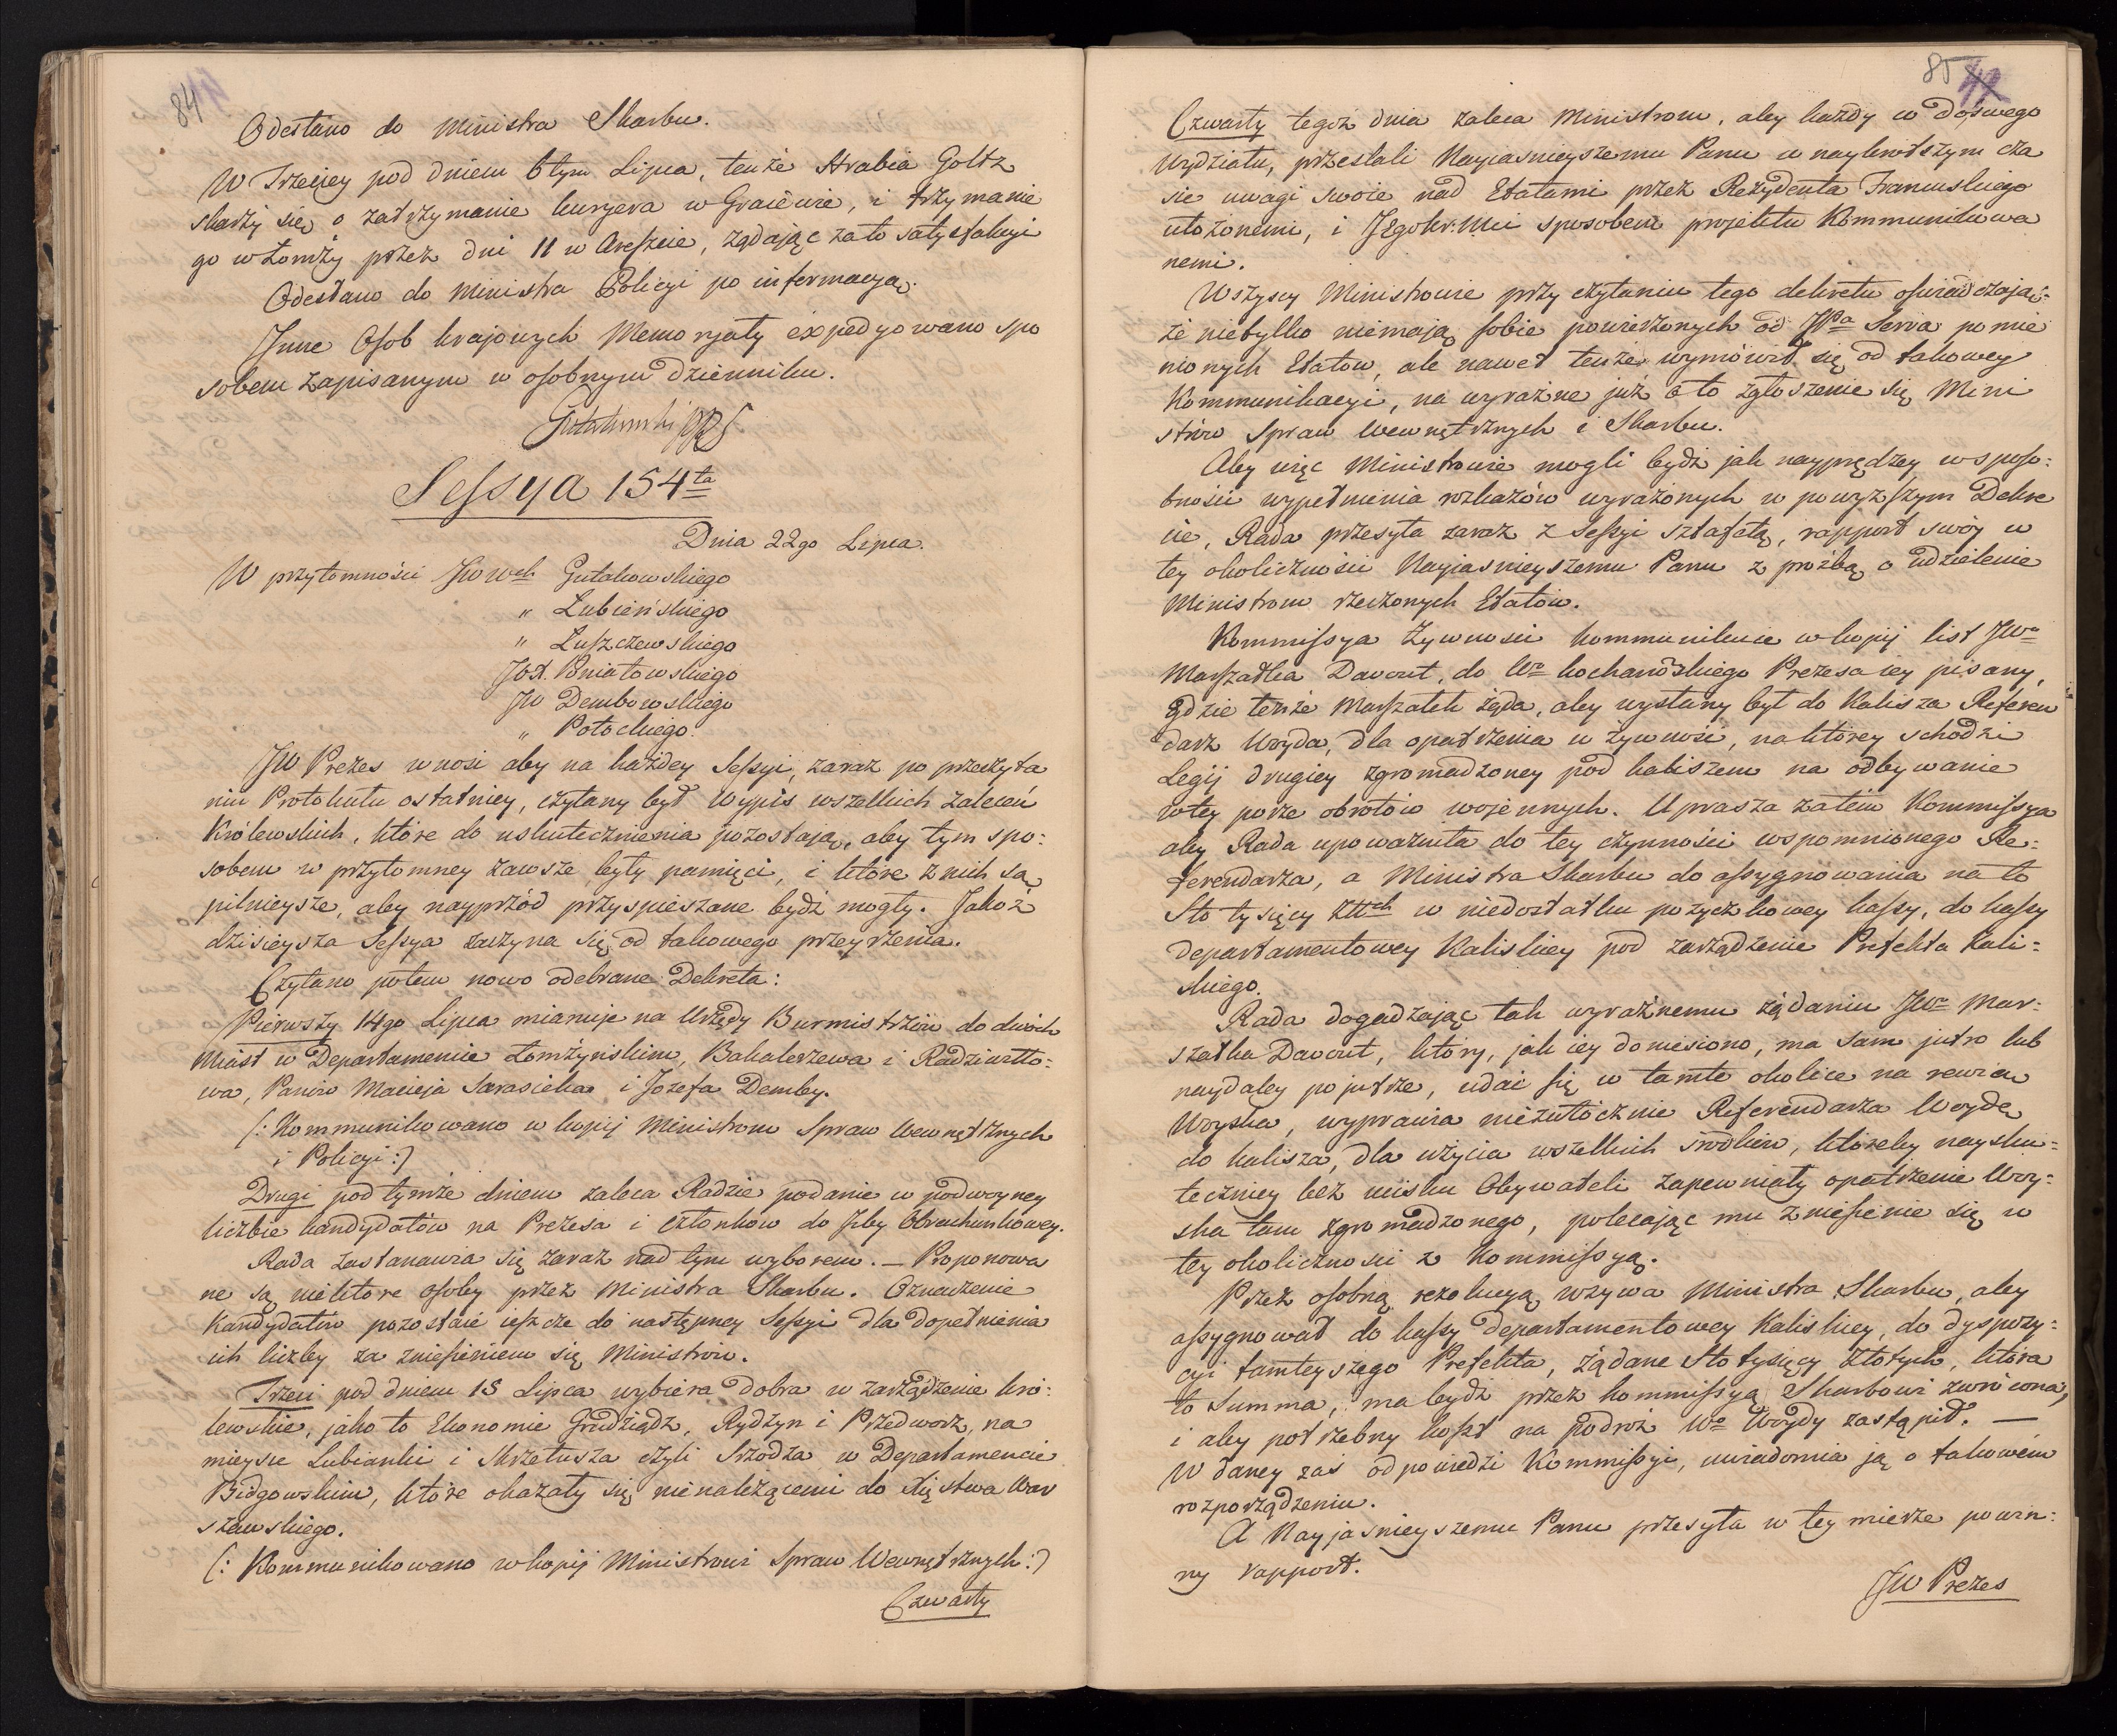 84
Odesłano do Ministra Skarbu.
W Trzeciey pod dniem 6tym Lipca, tenże Hrabia Goltz
skarży się o zatrzymanie kuryera w Graiewie, i trzymanie
go w Łomży przez dni 11 w Areszcie, żądając za to satysfakcyi
Odesłano do Ministra Policyi po informacyą.
Jnne Osob krajowych Memoryały expedyowano spo
sobem zapisanym w osobnym dzienniku.
Gutakowski PRS
Sessya 154ta
Dnia 22go Lipca.
W przytomności JWWch Gutakowskiego
" Łubieńskiego
" Łuszczewskiego
JOX. Poniatowskiego
JW Dembowskiego
" Potockiego.
JW Prezes wnosi aby na każdey Sessyi, zaraz po przeczyta
niu Protokułu ostatniey, czytany był Wypis wszelkich zaleceń
Królewskich, które do uskutecznienia pozostają, aby tym spo:
sobem w przytomney zawsze były pamięci, i które z nich są
pilnieysze, aby nayprzód przyspieszane bydź mogły. Jakoż
dzisieysza Sessya zaczyna się od takowego przeyrzenia.
Czytano potem nowo odebrane Dekreta:
Pierwszy 14go Lipca mianuje na Urzędy Burmistrzów do dwóch
Miast w Departamencie Łomżyńskim, Bakalarzewa i Radziwiłło:
wa, Panów Macieja Sarasieka i Jozefa Demby.
(: Kommunikowano w kopij Ministrom Spraw Wewnętrznych
i Policyi :)
Drugi pod tymże dniem zaleca Radzie podanie w podwoyney
liczbie kandydatów na Prezesa i członkow do Jzby Obrachunkowey.
Rada zastanawia się zaraz nad tym wyborem. — Proponowa
ne są niektore osoby przez Ministra Skarbu. Oznaczenie
Kandydatów pozostaie ieszcze do następney Sessyi dla dopełnienia
ich liczby za zniesieniem się Ministrów.
Trzeci pod dniem 15 Lipca wybiera dobra w zarządzenie kró:
lewskie, jako to Ekonomie Grudziądz, Rydzyn i Przedworz, na
mieysce Lubianki i Skrzetusza czyli Szrodza w Departamencie
Bidgowskim, które okazały się nienależącemi do Xięstwa War
szawskiego.
(: Kommunikowano w kopij Ministrowi Spraw Wewnętrznych :)
Czwarty
85
Czwarty tegoż dnia zaleca Ministrom, aby każdy w do swego
Wydziału, przesłali Nayiasnieyszemu Panu w naykrótszym cza
sie uwagi swoie nad Etatami przez Rezydenta Francuskiego
ułożonemi, i JEgoKr:Mci sposobem projektu Kommunikowa
nemi.
Wszyscy Ministrowie przy czytaniu tego dekretu oświadczają:
że nietylko niemają sobie powierzonych od JPa Serra pomie
nionych Etatow, ale nawet tenże wymówił się od takowey
Kommunikacyi, na wyraźne już o to zgłoszenie się Mini
strów Spraw Wewnętrznych i Skarbu.
Aby więc Ministrowie mogli bydź jak nayprędzey w sposo:
bności wypełnienia rozkazów wyrażonych w powyższym Dekre
cie, Rada przesyła zaraz z Sessyi sztafetą, rapport swóy w
tey okoliczności Nayiasnieyszemu Panu z prośbą o udzielenie
Ministrom rzeczonych Etatów.
Kommissya żywności kommunikuie w kopij list JWo
Marszałka Davout, do Wo Kochanowskiego Prezesa iey pisany,
gdzie tenże Marszałek żąda, aby wysłany był do Kalisza Referen
darz Woyda, dla opatrzenia w żywność, na którey schodzi
Legij drugiey zgromadzoney pod Kaliszem na odbywanie
w tey porze obrotów wojennych. Uprasza zatém Kommissya
aby Rada upoważniła do tey czynności wspomnionego Re:
ferendarza, a Ministra Skarbu do assygnowania na to
Sto tysięcy Złłch w niedostatku pożyczkowey kassy, do kassy
departamentowey Kaliskiey pod zarządzenie Prefekta Kali:
skiego.
Rada dogadzając tak wyraźnemu żądaniu JWo Mar:
szałka Davout, który, jak iey doniesiono, ma sam jutro lub
naydaley pojutrze, udać się w tamte okolice na rewią
Woyska, wyprawia niezwłócznie Referendarza Woydę
do Kalisza, dla użycia wszelkich srodków, któreby naysku:
teczniey bez ucisku Obywateli zapewniały opatrzenie Woy:
ska tam zgromadzonego, polecając mu zniesienie się w
tey okoliczności z Kommissyą.
Przez osobną rezolucyą wzywa Ministra Skarbu, aby
assygnował do kassy Departamentowey Kaliskiey, do dyspozy:
cyi tamteyszego Prefekta, żądane Sto tysięcy Złotych, która
to Summa, ma bydź przez Kommissyą Skarbowi zwrócona,
i aby potrzebny koszt na podróż Wo Woydy zastąpił. —
W daney zas odpowiedzi Kommissyi, uwiadomia ją o takowém
rozporządzeniu.
A Nayjasnieyszemu Panu przesyła w tey mierze powin:
ny rapport.
JW Prezes